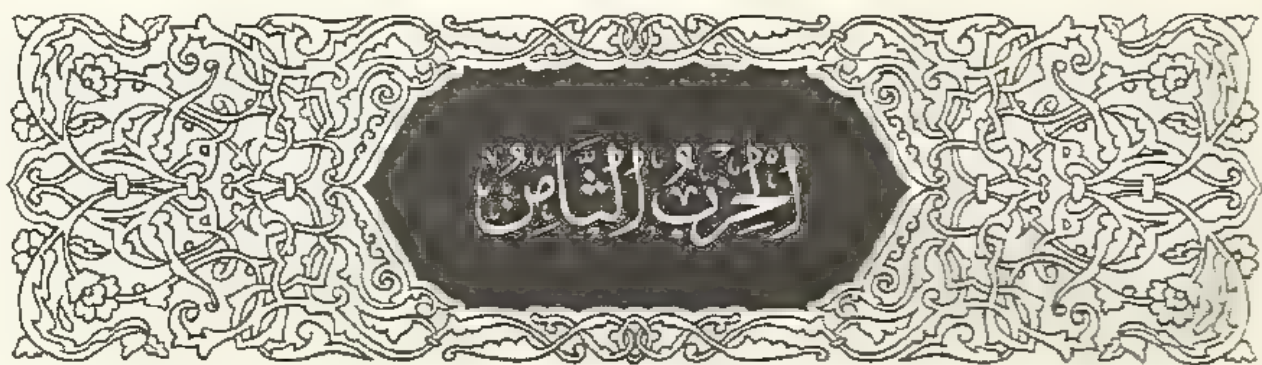 الْحِزْبُ الثَّامِنُ